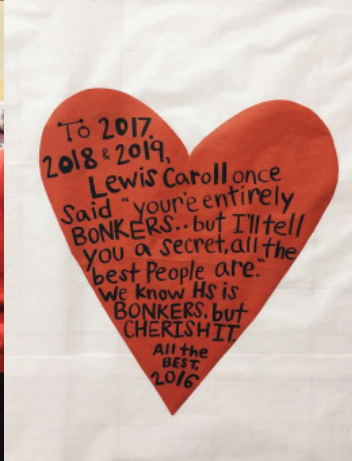 To 2017,
2018 & 2019,
Lewis Caroll once
Said "your'e entirely
BONKERS.. but I'll tell
you a secret, all the
best People are."
We know HS is
BONKERS, but
CHERISH IT.
All the
BEST,
2016